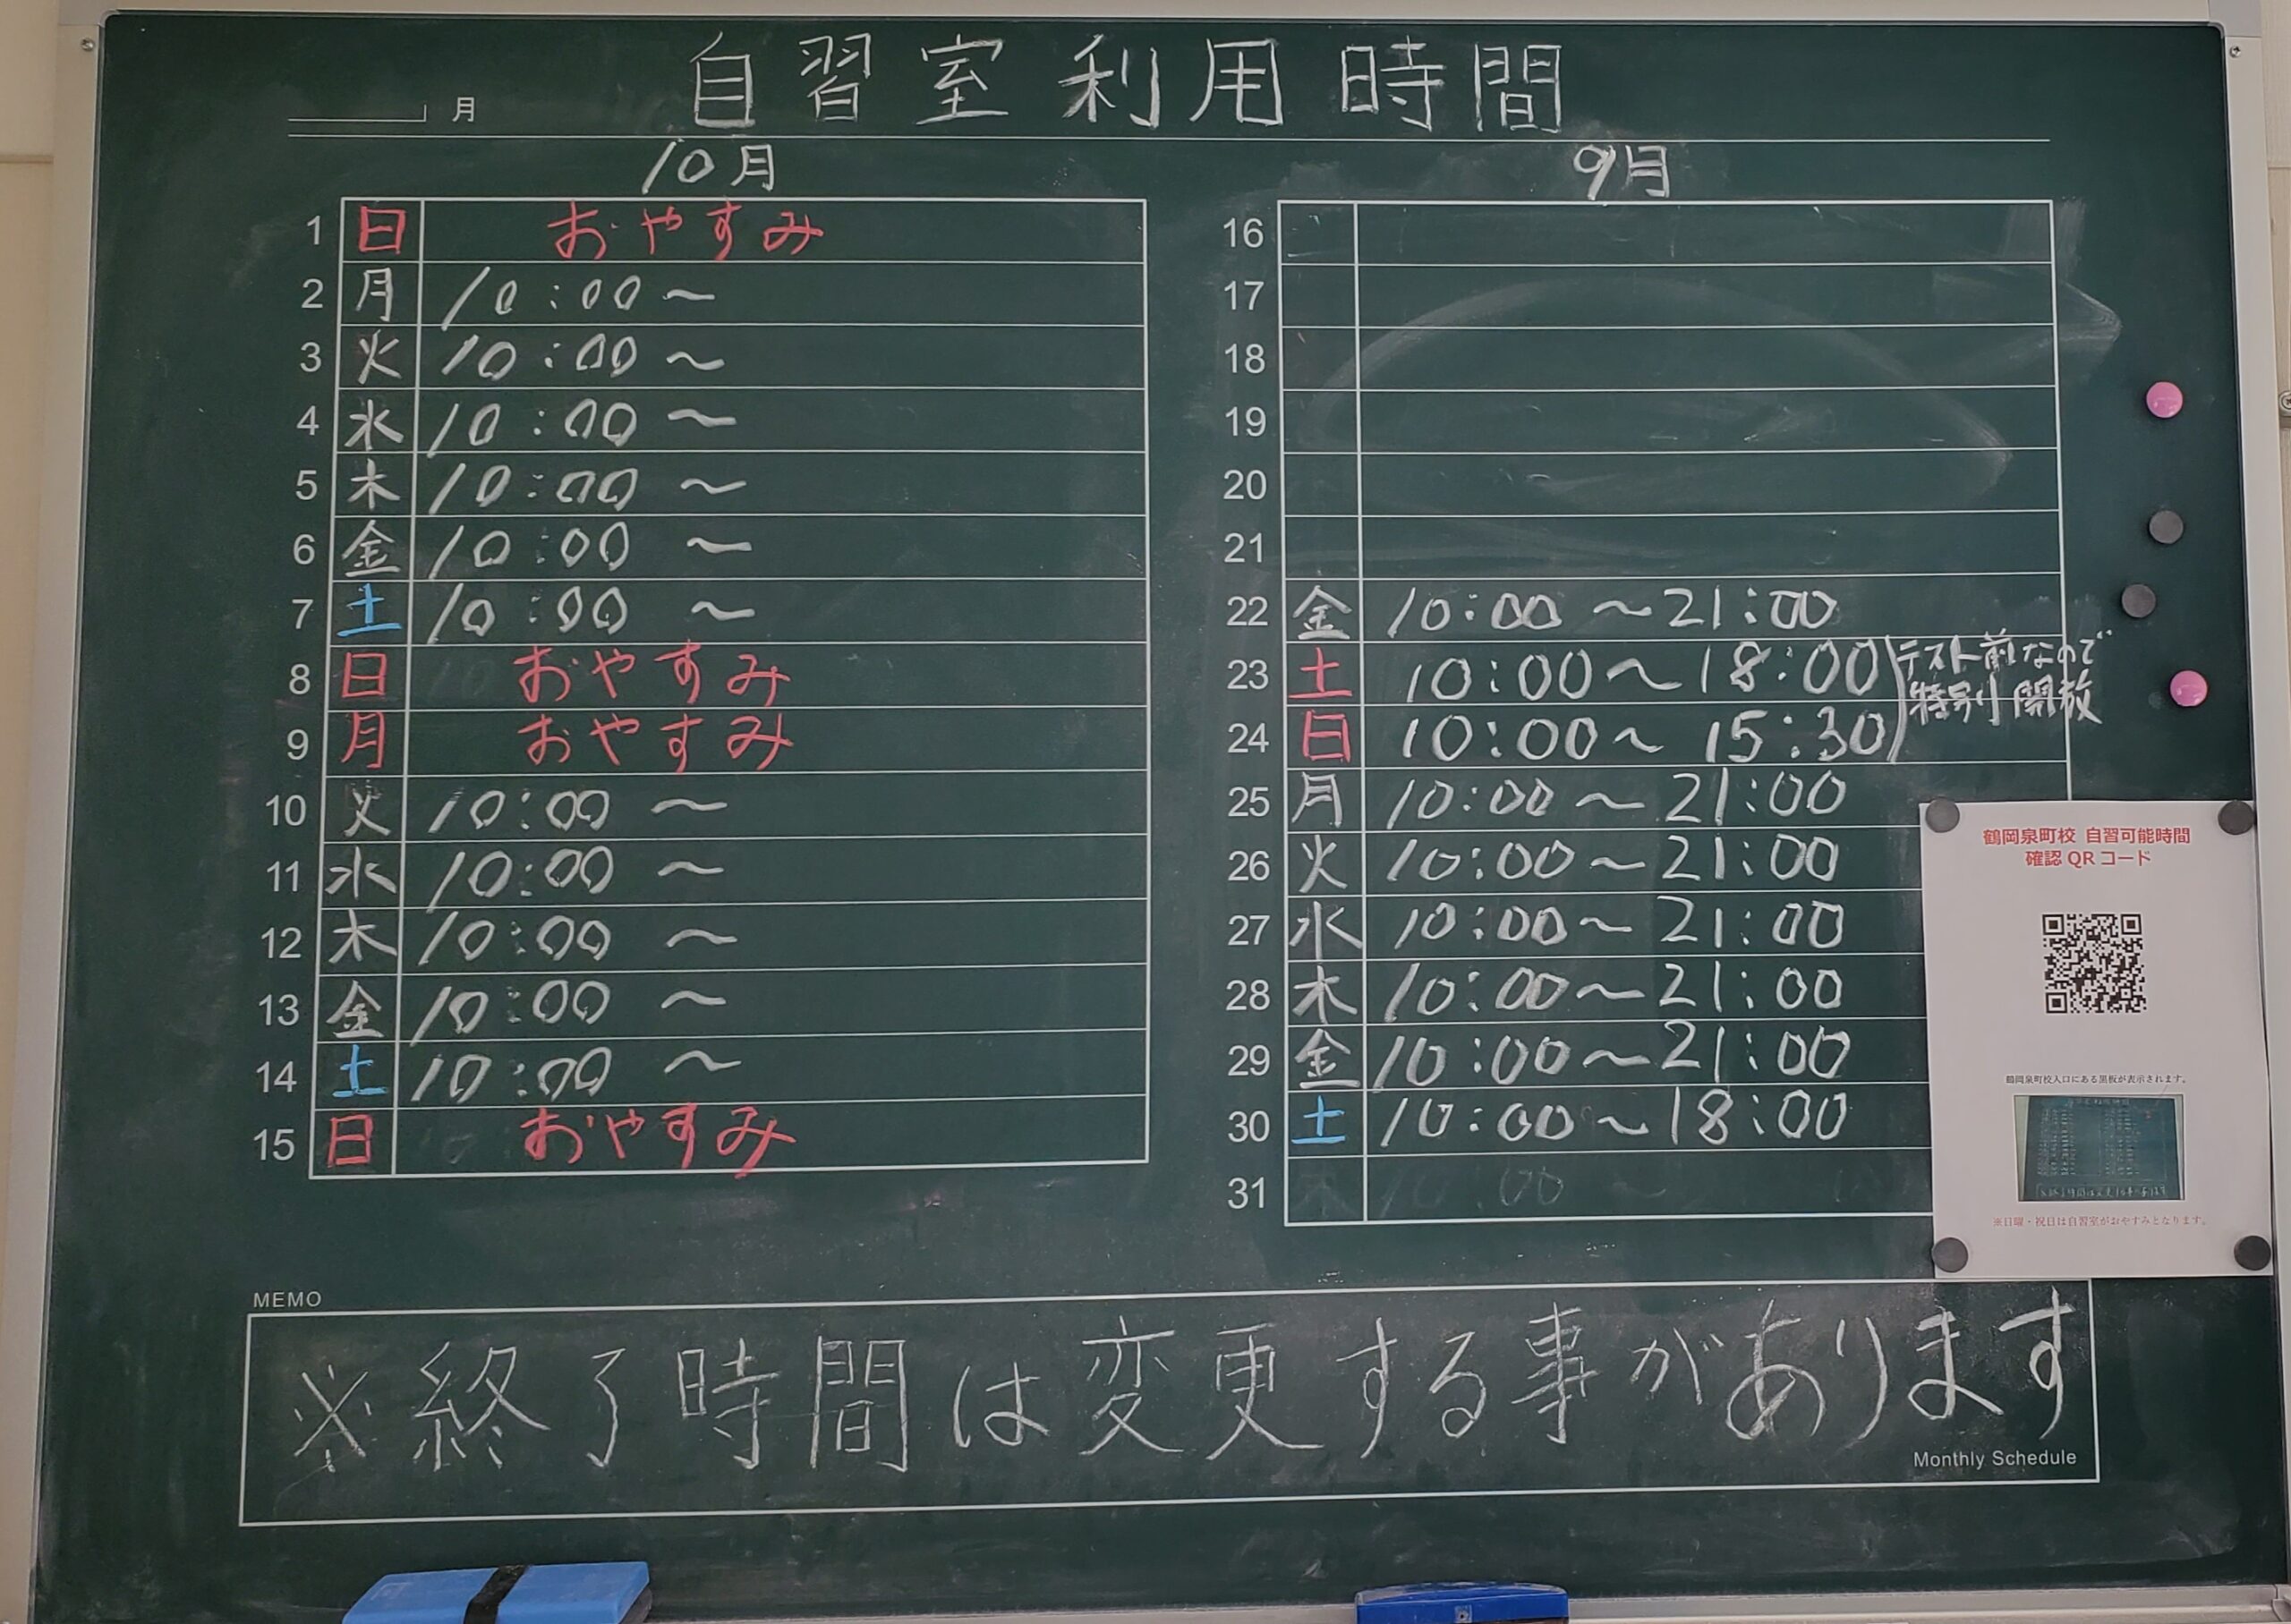 自習室利用時間
月
10月
1 日 おやすみ
2 月 10:00～
3 火 10:00～
4 水 10:00～
5 木 10:00～
6 金 10:00～
7 土 10:00～
8 日 おやすみ
9 月 おやすみ
10 火 10:00～
11 水 10:00～
12 木 10:00～
13 金 10:00～
14 土 10:00～
15 日 おやすみ
9月
16
17
18
19
20
21
22 金 10:00～21:00
23 土 10:00～18:00
24 日 10:00～15:30
テスト前なので
特別開放
25 月 10:00～21:00
26 火 10:00～21:00
27 水 10:00～21:00
28 木 10:00～21:00
29 金 10:00～21:00
30 土 10:00～18:00
31
鶴岡泉町校 自習可能時間
確認QRコード
鶴岡泉町校入口にある黒板が表示されます。
※日曜・祝日は自習室がおやすみとなります。
MEMO
※終了時間は変更する事があります
Monthly Schedule